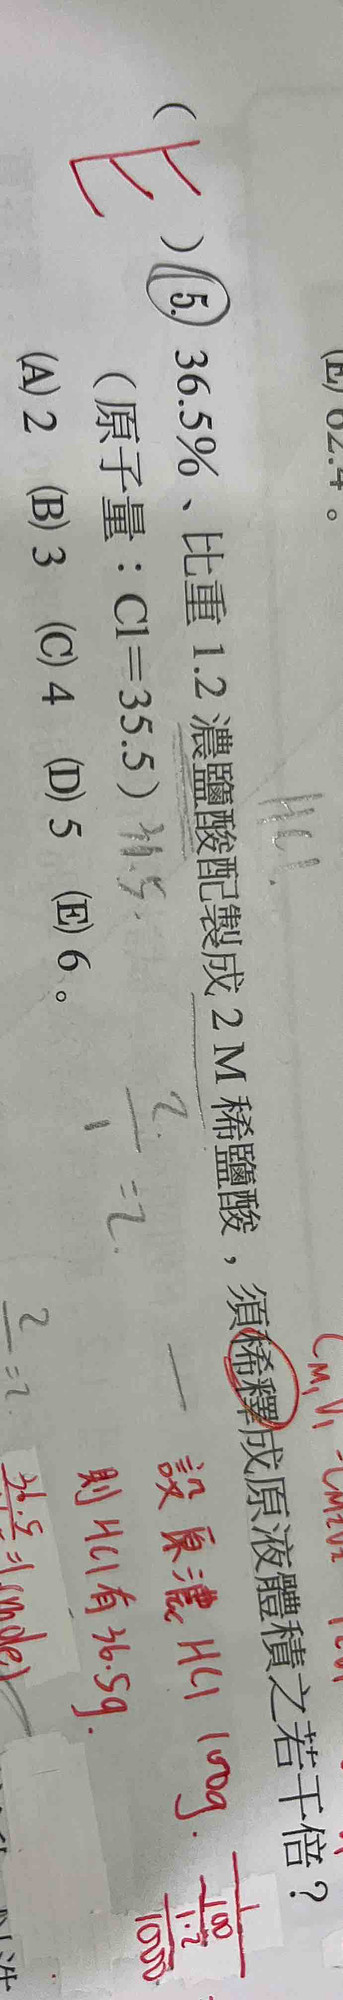 (E) 62.4。
HCl.
( E ) 5. 36.5%、比重 1.2 濃鹽酸配製成 2 M 稀鹽酸，須稀釋成原液體積之若干倍？
(原子量：Cl=35.5)
(A) 2 (B) 3 (C) 4 (D) 5 (E) 6。
2/1 = 2.
設原濃 HCl 100g.
則 HCl 有 36.5g.
1/(100/1.2/1000)
2